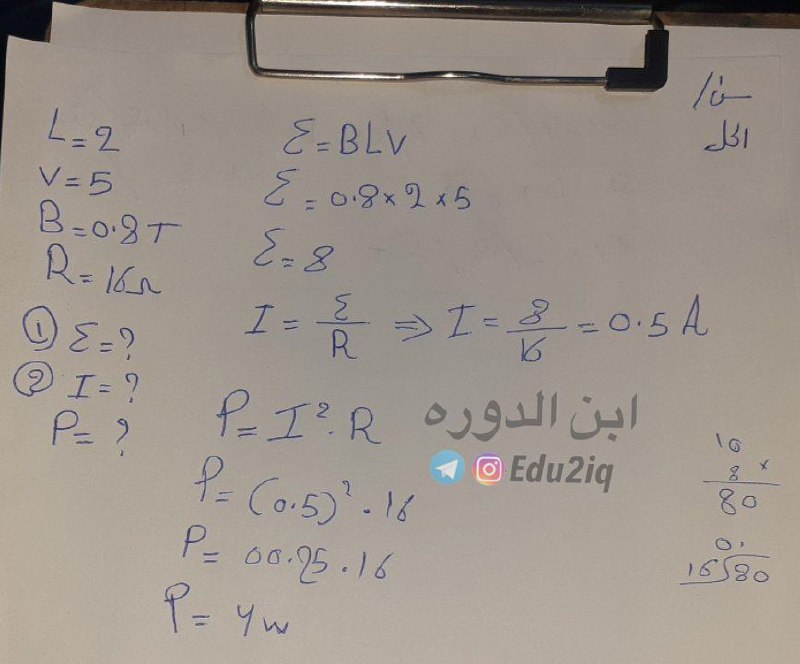 س١/
الحل
L = 2
V = 5
B = 0.8 T
R = 16Ω
① Ɛ = ?
② I = ?
P = ?
Ɛ = BLV
Ɛ = 0.8 × 2 × 5
Ɛ = 8
I = Ɛ/R ⇒ I = 8/16 = 0.5 A
P = I² · R
P = (0.5)² · 16
P = 00.25 · 16
P = 4 w
ابن الدوره
Edu2iq
10
8 ×
80
0.
16√80